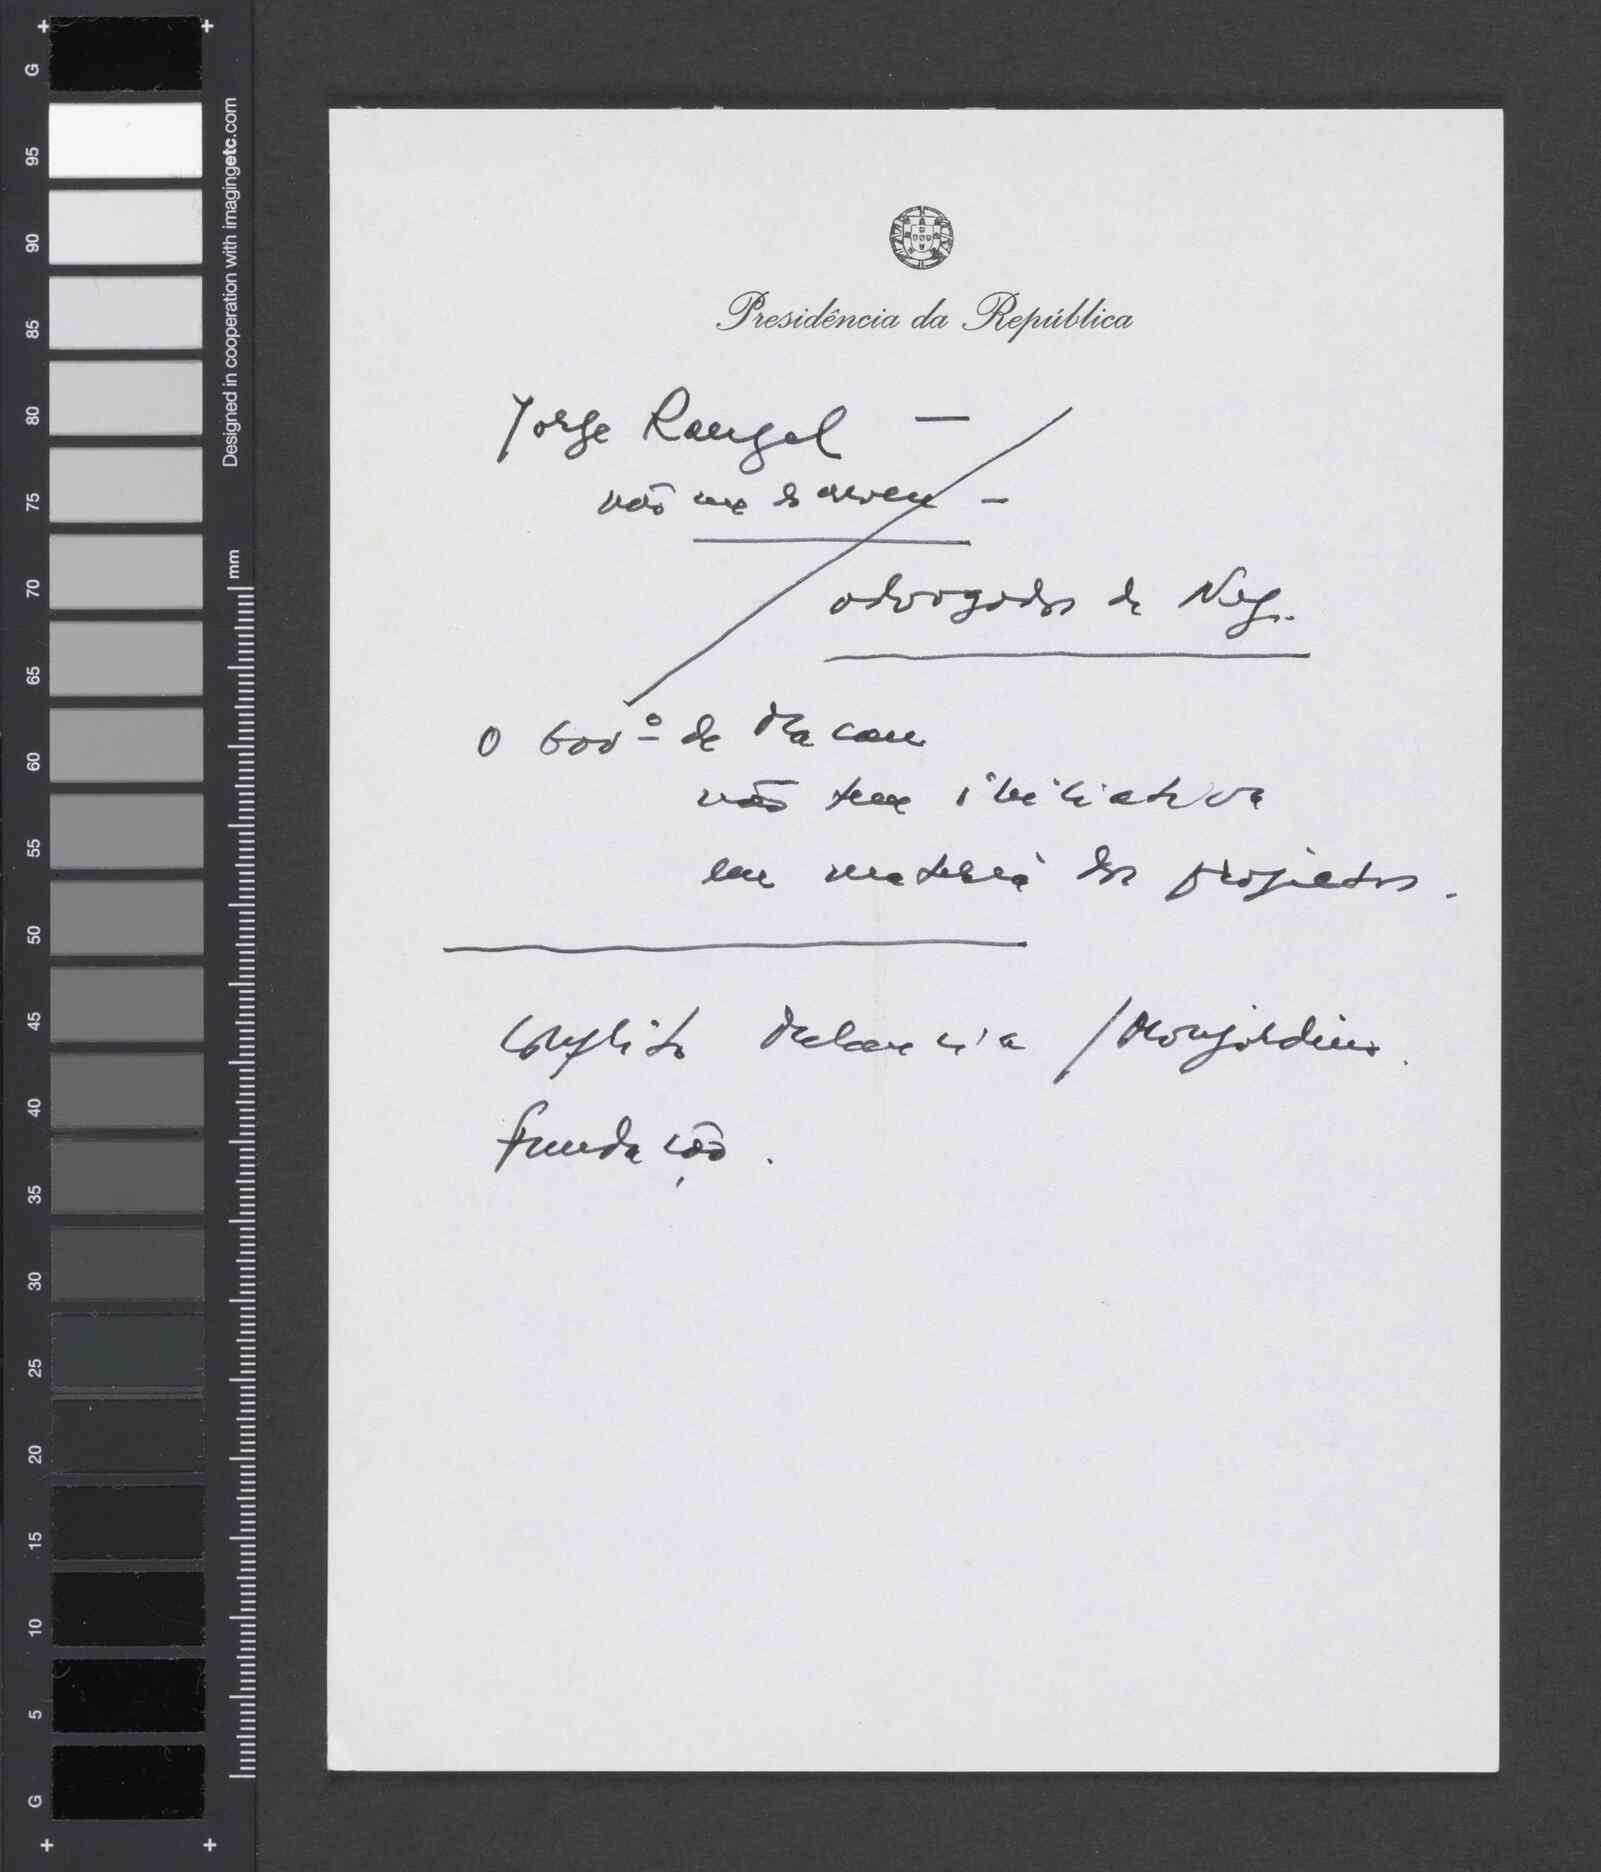 Presidência da República
Jorge Rangel —
não me
advogados de Neg.
O Govº de Macau
não tem iniciativa
em matéria de projectos.
Conflito Melancia / Monjardino.
Fundação.
Designed in cooperation with imagingetc.com
mm
G
95
90
85
80
75
70
65
60
55
50
45
40
35
30
25
20
15
10
5
G